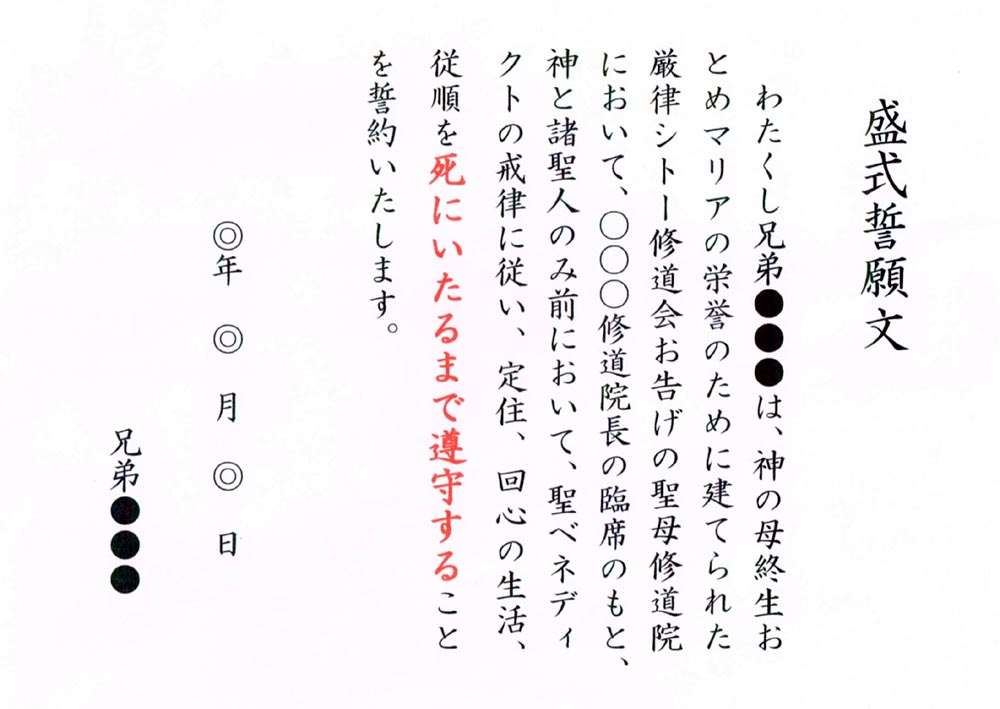 盛式誓願文
わたくし兄弟●●●は、神の母終生お
とめマリアの栄誉のために建てられた
厳律シトー修道会お告げの聖母修道院
において、〇〇〇修道院長の臨席のもと、
神と諸聖人のみ前において、聖ベネディ
クトの戒律に従い、定住、回心の生活、
従順を死にいたるまで遵守すること
を誓約いたします。
◎年 ◎月 ◎日
兄弟●●●